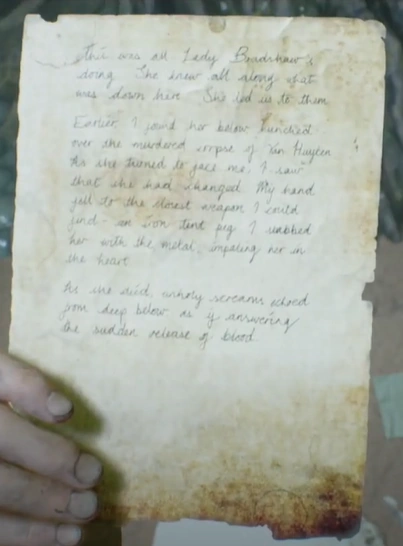 This was all Lady Bradshaw's
doing. She knew all along what
was down here. She led us to them
Earlier, I found her below hunched
over the murdered corpse of Van Huyten
As she turned to face me, I saw
that she had changed. My hand
fell to the closest weapon I could
find - an iron tent peg. I stabbed
her with the metal, impaling her in
the heart
As she died, unholy screams echoed
from deep below as if answering
the sudden release of blood